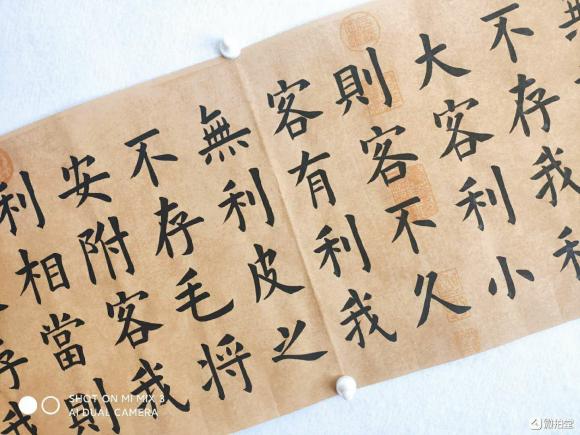 無
不存我利
大客利小
則客不久
客有利我
無利皮之
不存毛将
安附客我
利相當則
存我
SHOT ON MI MIX 3
AI DUAL CAMERA
微拍堂